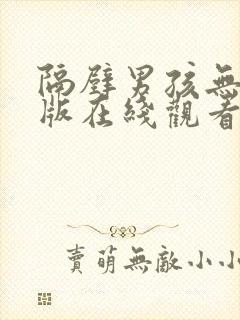 隔壁男孩無
版在綫觀看
賣萌無敵小小